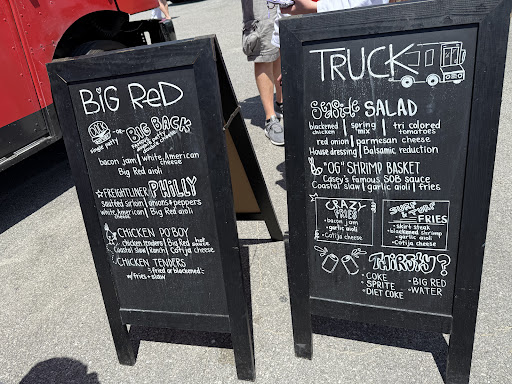 BiG ReD
single patty
-OR-
BIG BACK
bacon jam | white American cheese
Big Red aioli
FREIGHTLINER PHILLY
sauteed sirloin | onions & peppers
white American cheese | Big Red aioli
CHICKEN PO'BOY
Chicken tenders | Big Red hot sauce
Coastal slaw | Ranch | Cotija cheese
CHICKEN TENDERS
fried or blackened
w/ fries + slaw
TRUCK
SALAD
blackened chicken | spring mix | tri colored tomatoes
red onion | parmesan cheese
House dressing | Balsamic reduction
"OG" SHRIMP BASKET
Casey's Famous SOB sauce
Coastal slaw | garlic aioli | fries
CRAZY FRIES
• bacon jam
• garlic aioli
• Cotija cheese
SURF & TURF FRIES
• Skirt steak
• blackened shrimp
• garlic aioli
• Cotija cheese
THIRSTY?
• COKE
• SPRITE
• DIET COKE
• BIG RED
• WATER